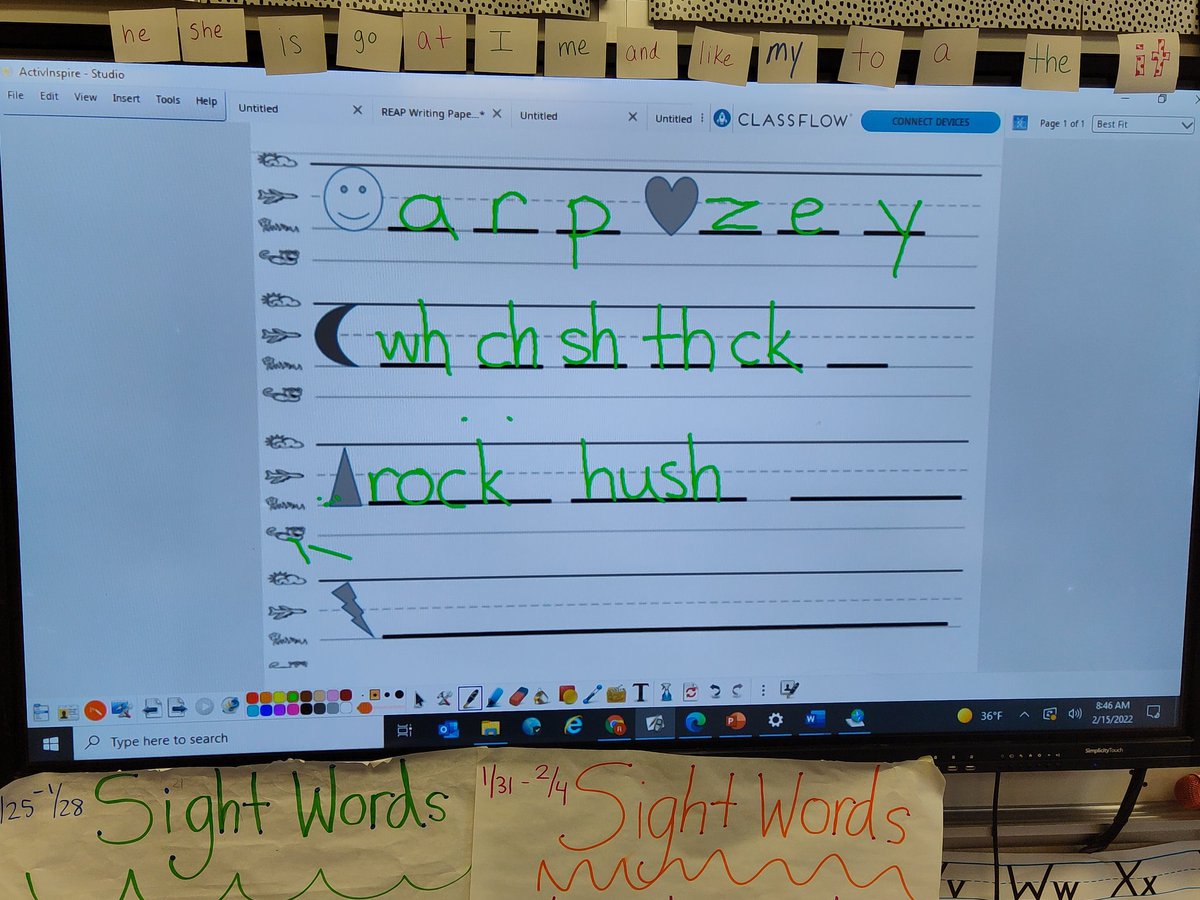 he she is go at I me and like my to a the it
ActivInspire - Studio
File Edit View Insert Tools Help
Untitled REAP Writing Pape...* Untitled Untitled CLASSFLOW CONNECT DEVICES Page 1 of 1 Best Fit
a r p z e y
wh ch sh th ck
rock hush
T
Type here to search
36°F 8:46 AM
2/15/2022
SimplicityTouch
1/25-1/28 Sight Words 1/31-2/4 Sight Words
Ww Xx